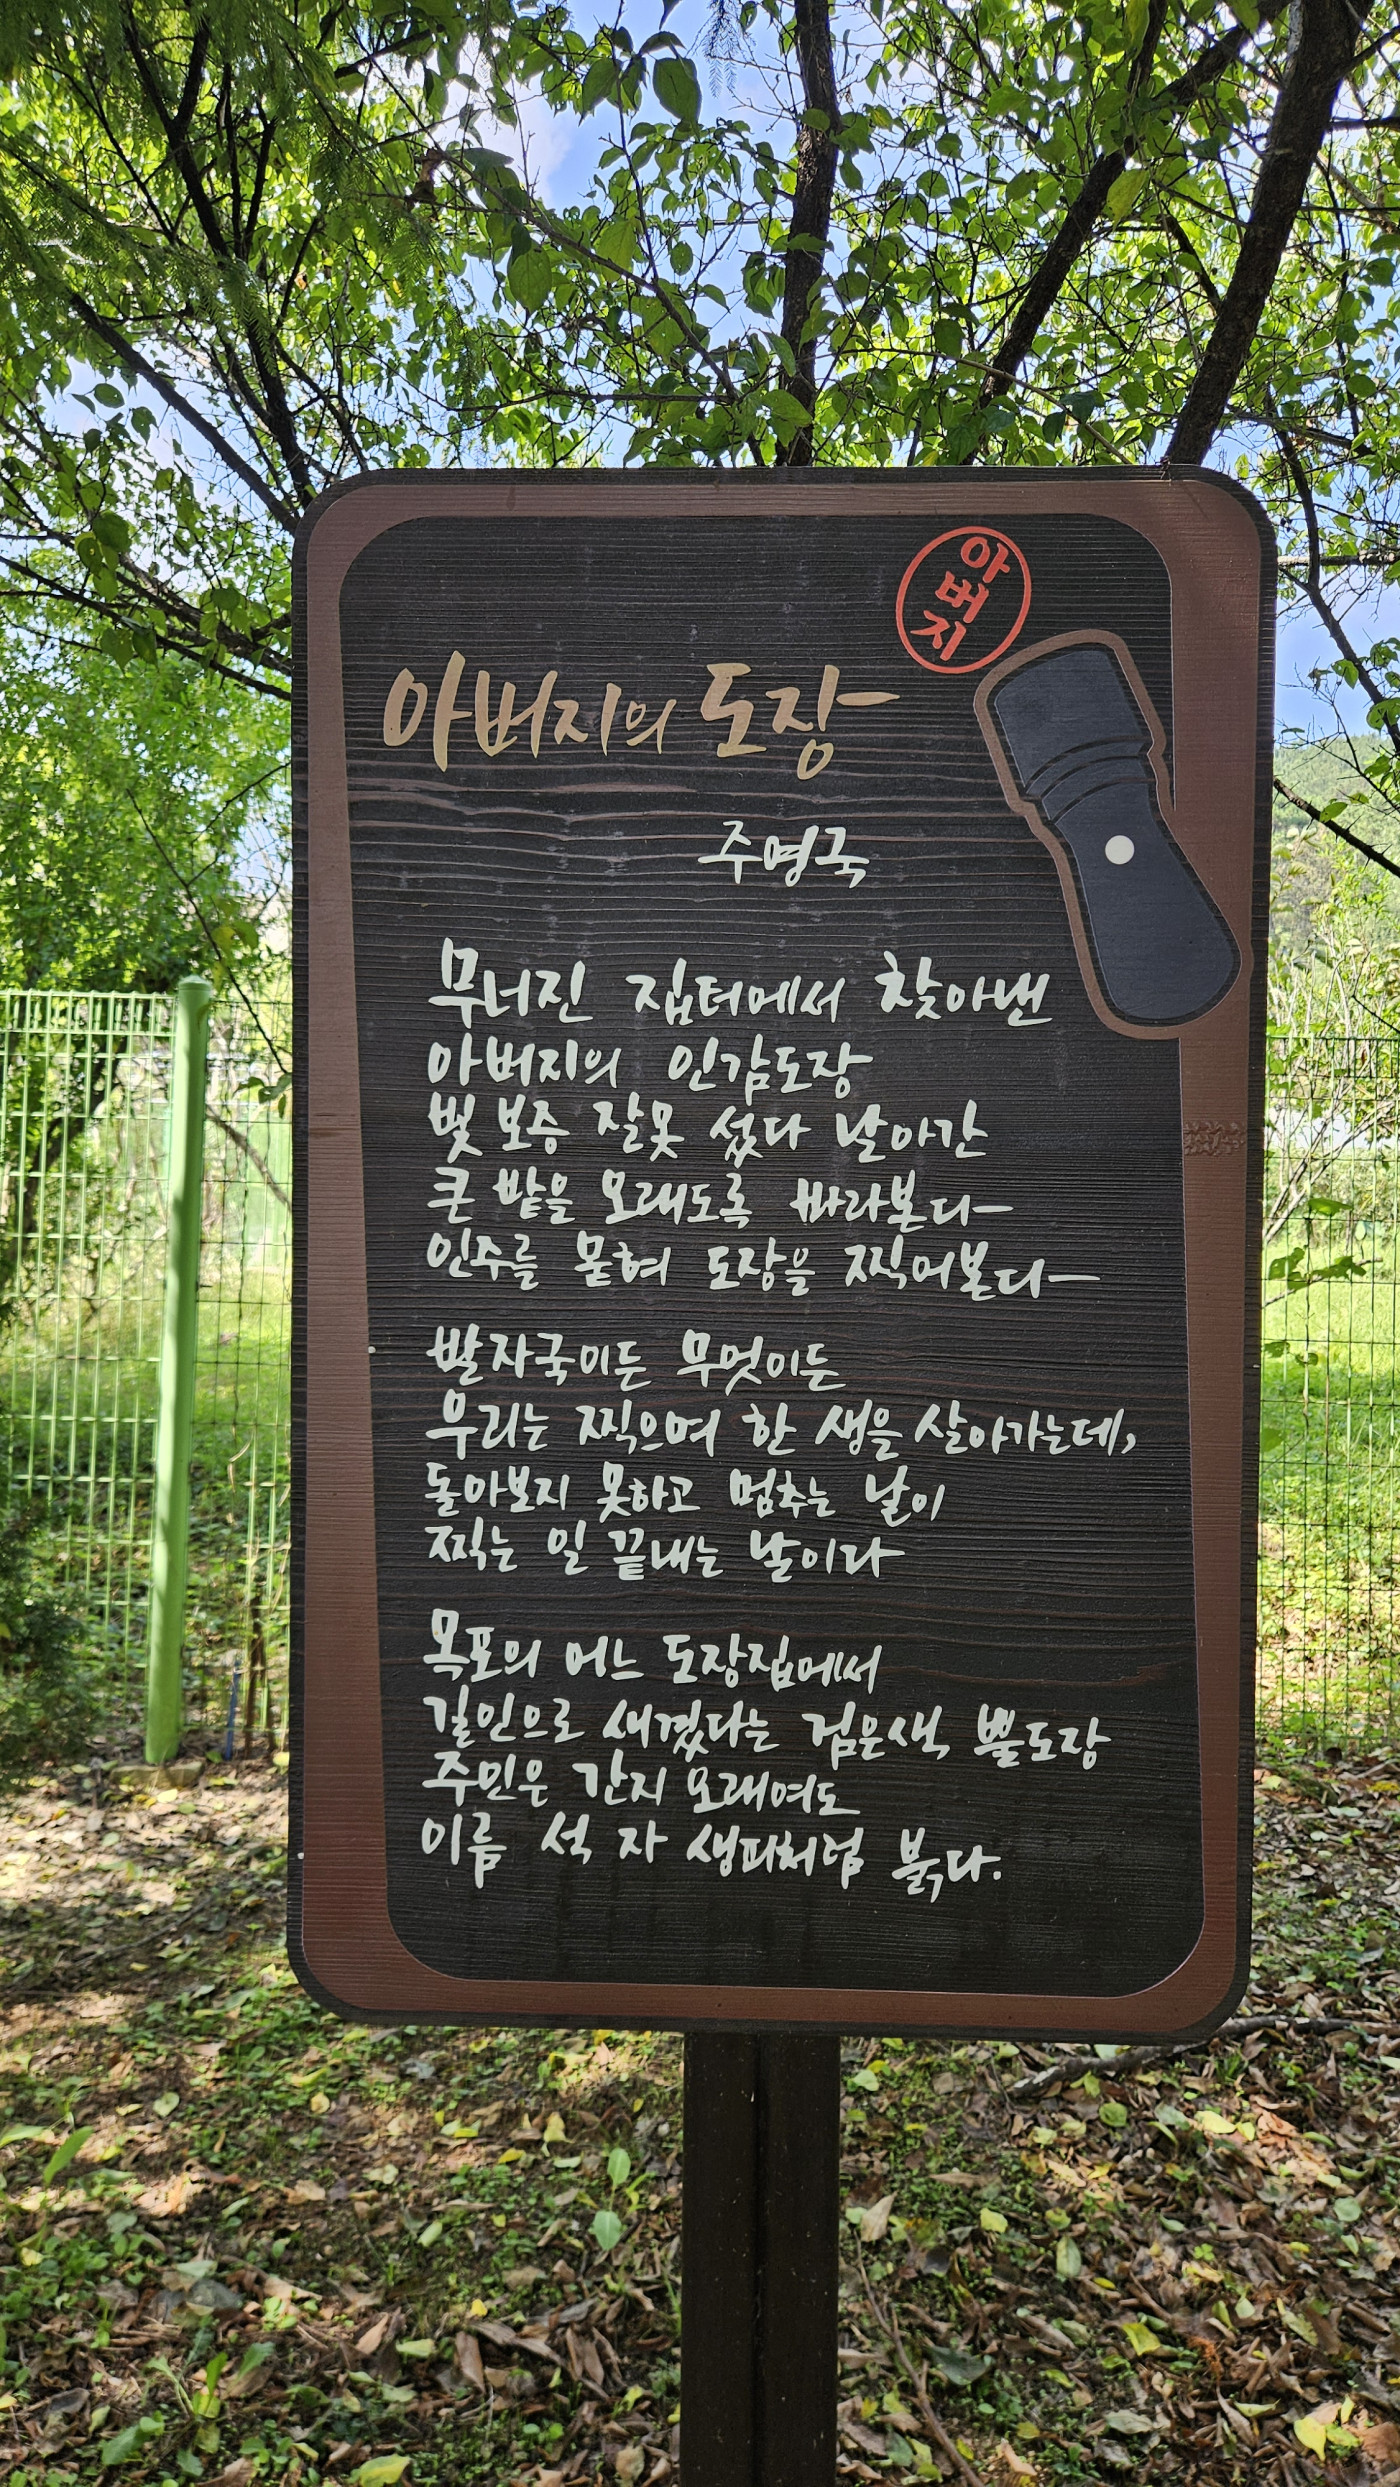 아버지
아버지의 도장
주명국
무너진 집터에서 찾아낸
아버지의 인감도장
빚 보증 잘못 섰다 날아간
큰 밭을 오래도록 바라본다
인주를 묻혀 도장을 찍어본다
발자국이든 무엇이든
우리는 찍으며 한 생을 살아가는데,
돌아보지 못하고 멈추는 날이
찍는 일 끝내는 날이라
목포의 어느 도장집에서
길인으로 새겼다는 검은색 뿔도장
주인은 간지 오래여도
이름 석 자 생피처럼 붉다.